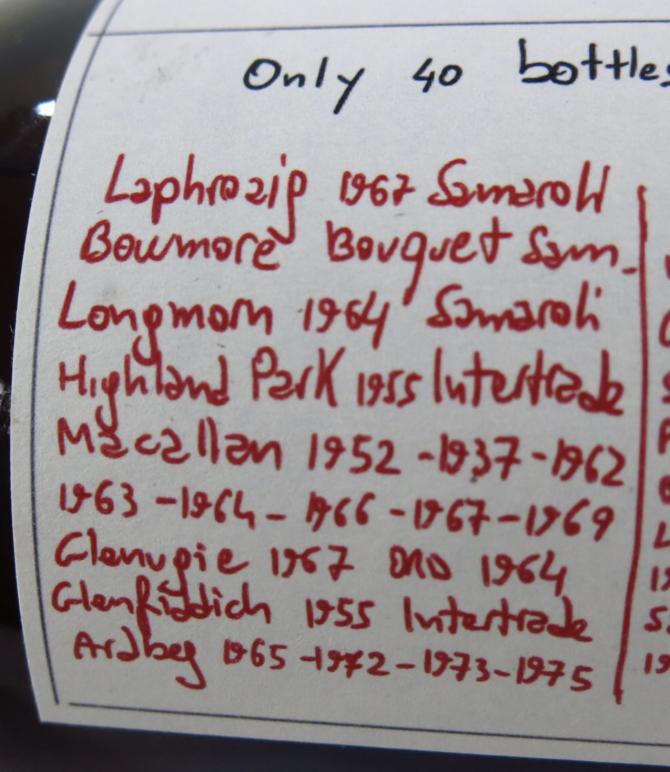 Only 40 bottles
Laphroaig 1967 Samaroli
Bowmore Bouquet Sam.
Longmorn 1964 Samaroli
Highland Park 1955 Intertrade
Macallan 1952 - 1937 - 1962
1963 - 1964 - 1966 - 1967 - 1969
Glenugie 1967 1964
Glenfiddich 1955 Intertrade
Ardbeg 1965 - 1972 - 1973 - 1975